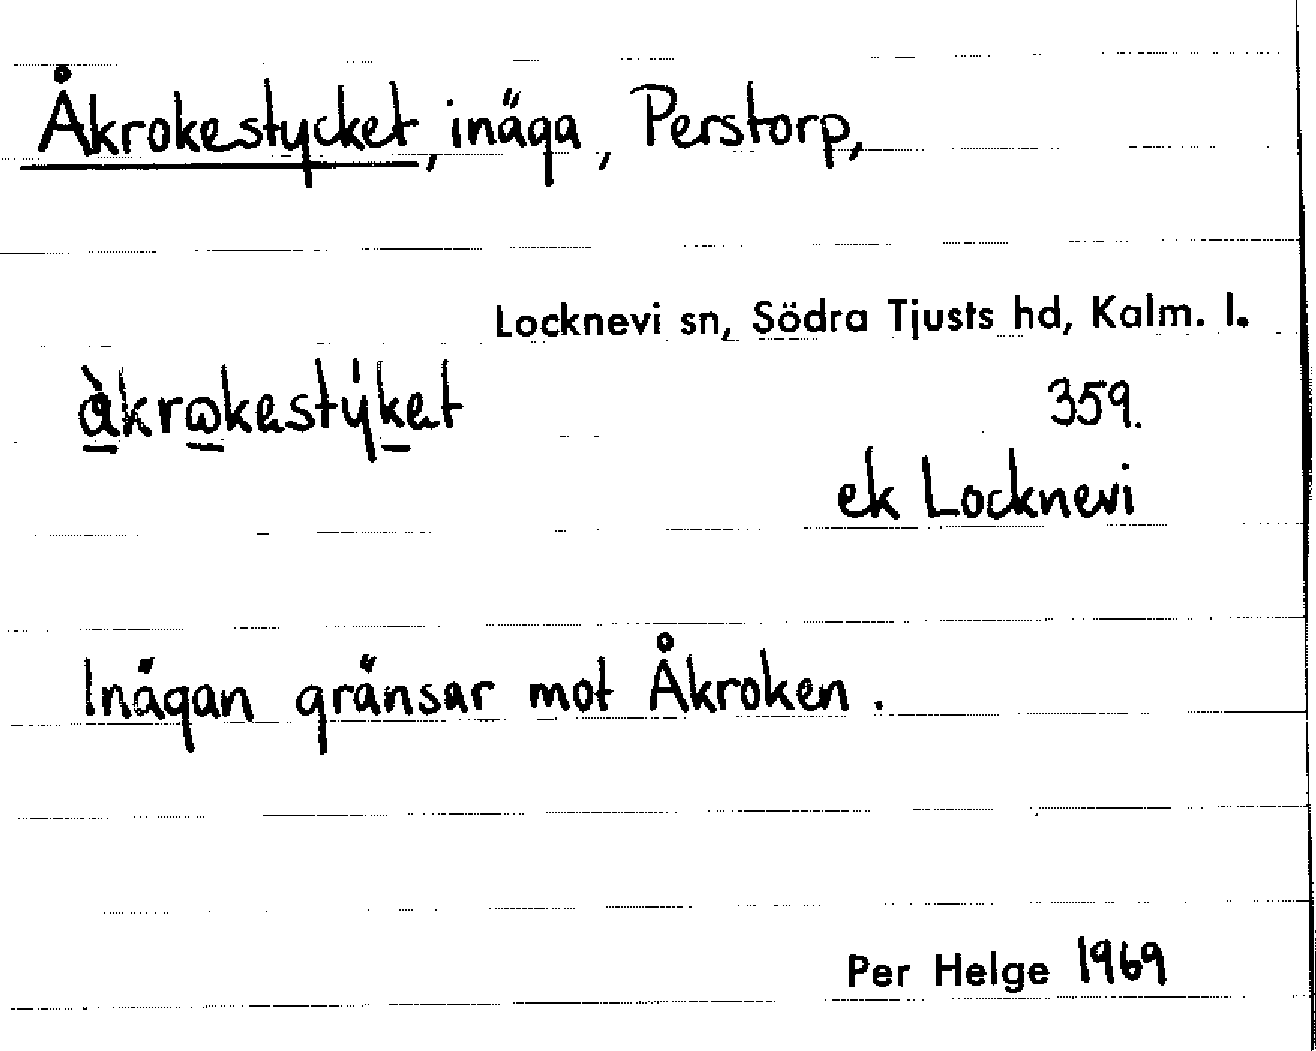 Åkrokestycket, inäga, Perstorp,
Locknevi sn, Södra Tjusts hd, Kalm. l.
359.
ek Locknevi
Inägan gränsar mot Åkroken.
Per Helge 1969